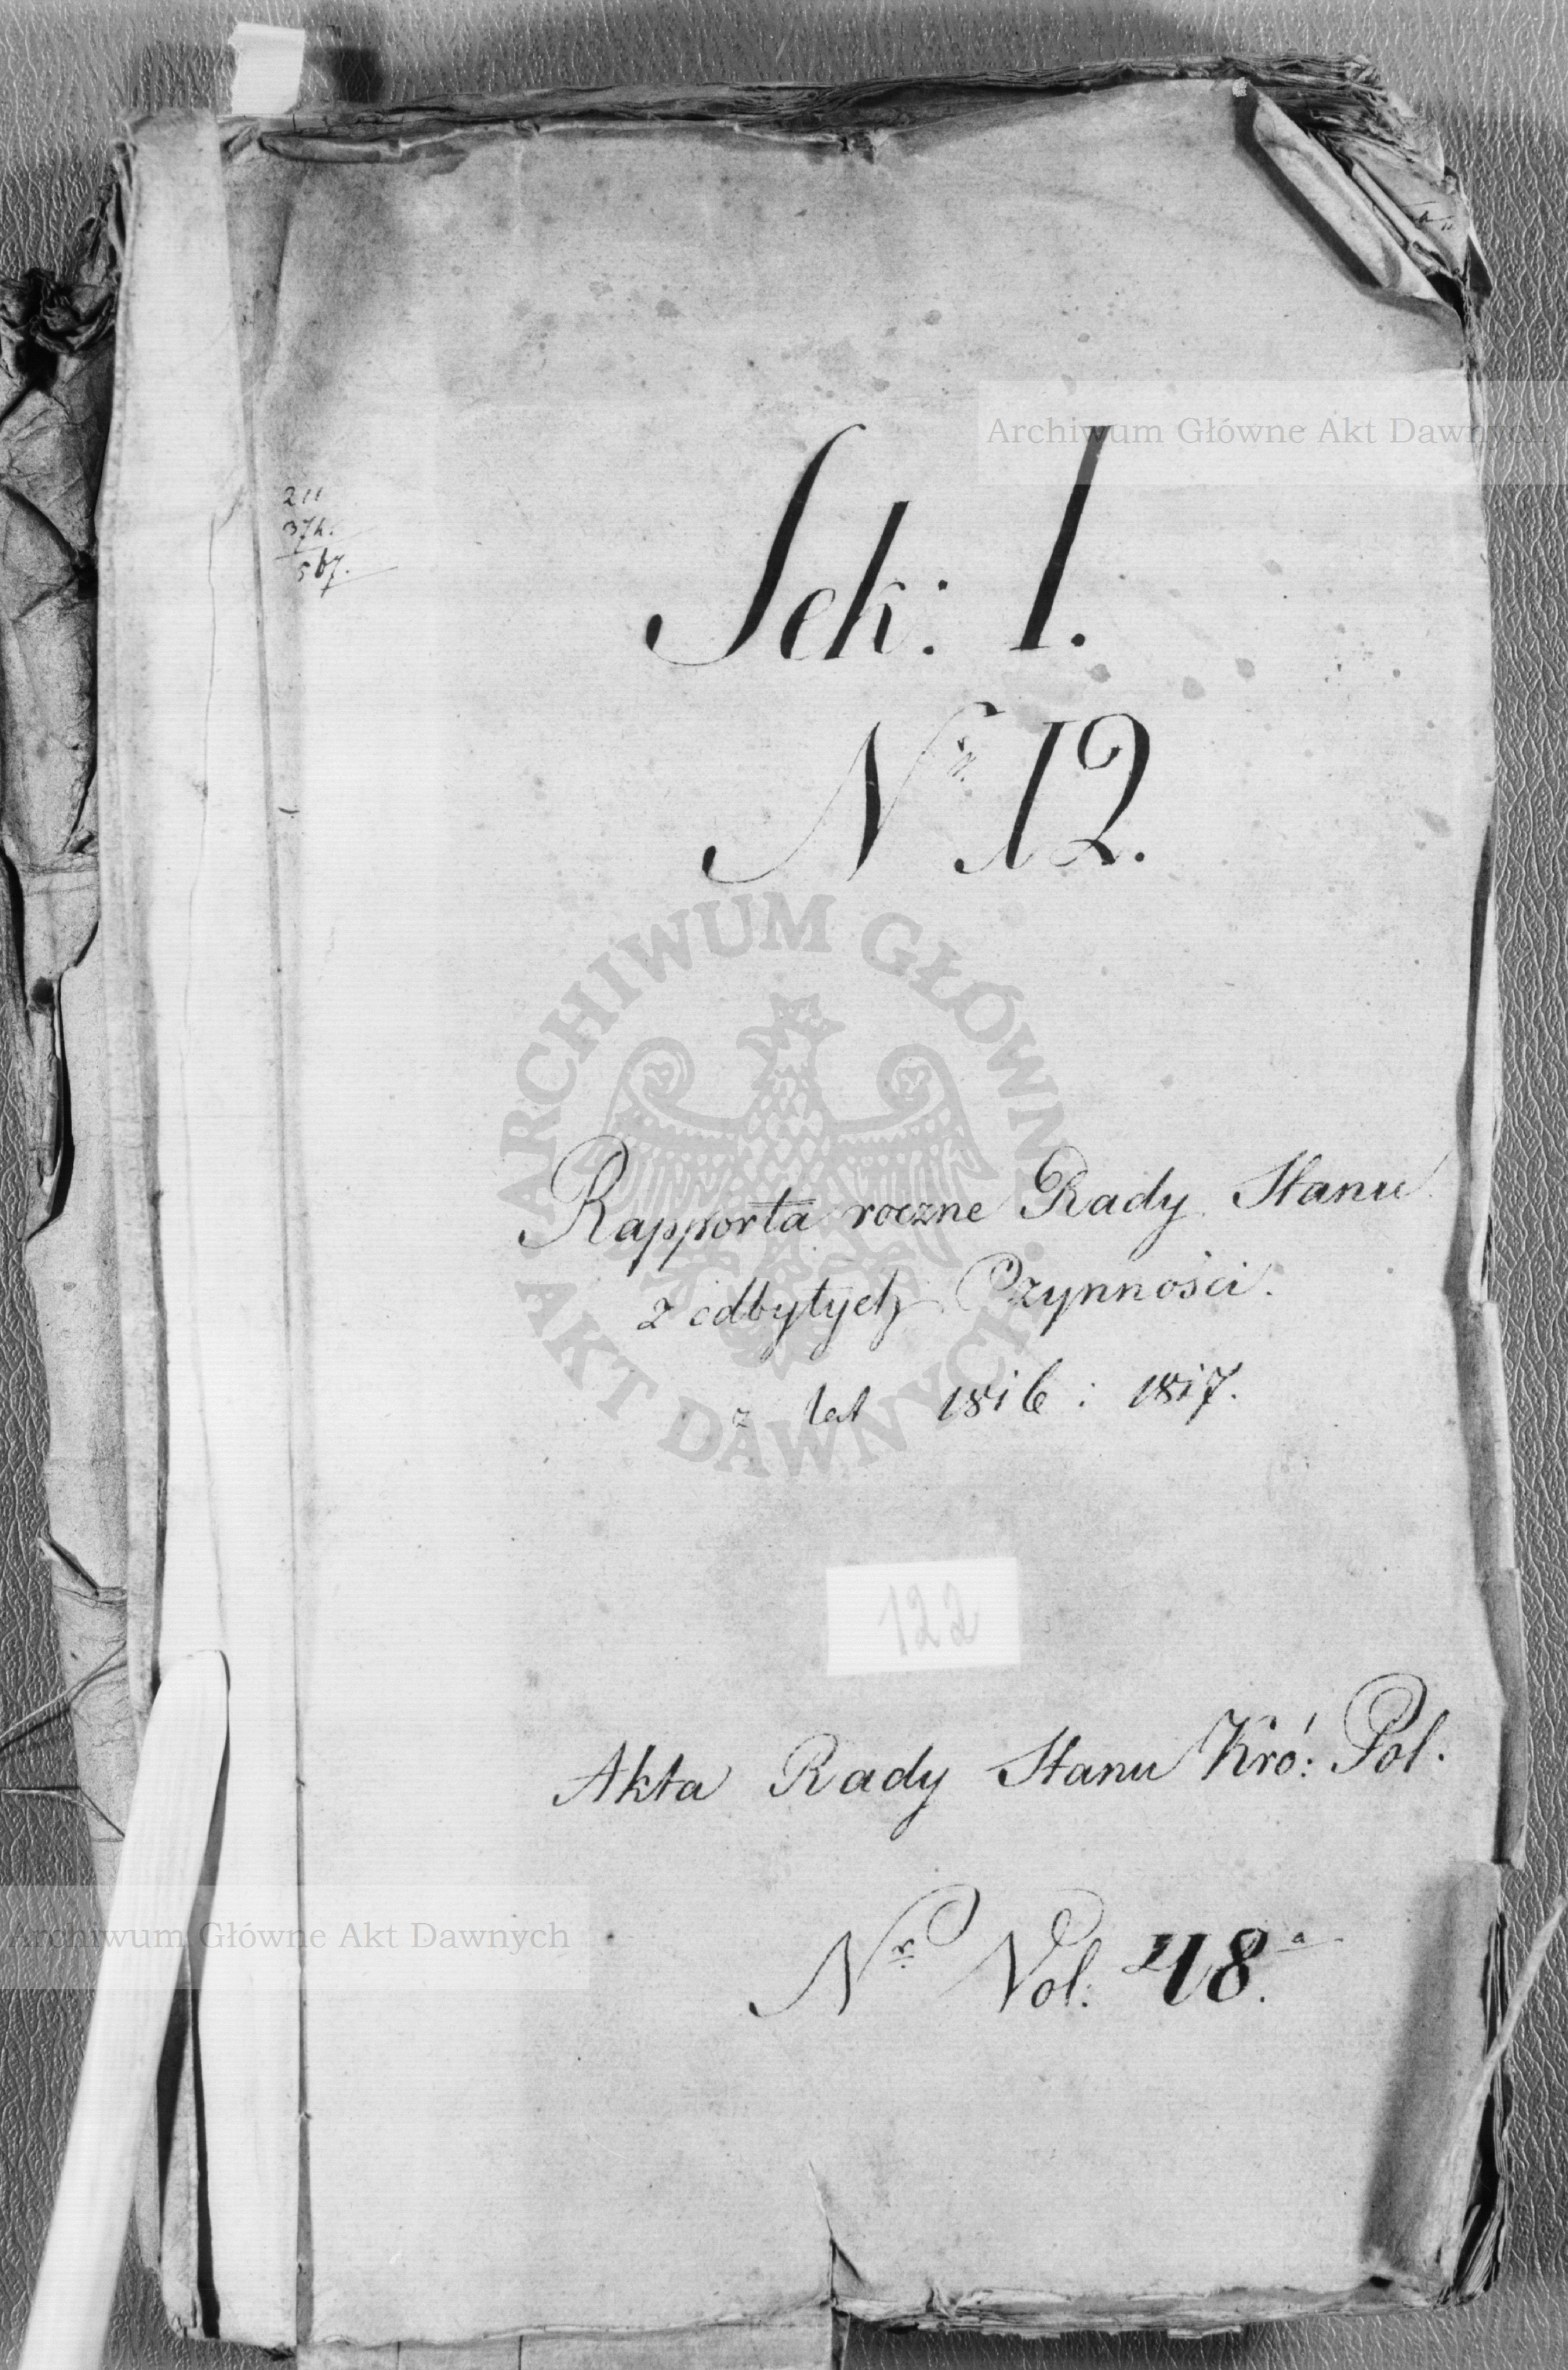 Archiwum Główne Akt Dawnych
Sek: 1.
Nr 12.
211
374.
567.
ARCHIWUM GŁÓWNE
AKT DAWNYCH
Rapporta roczne Rady Stanu
z odbytych Czynności.
z lat 1816: 1817.
122
Akta Rady Stanu Kró: Pol.
Nr Vol: 48.a
Archiwum Główne Akt Dawnych